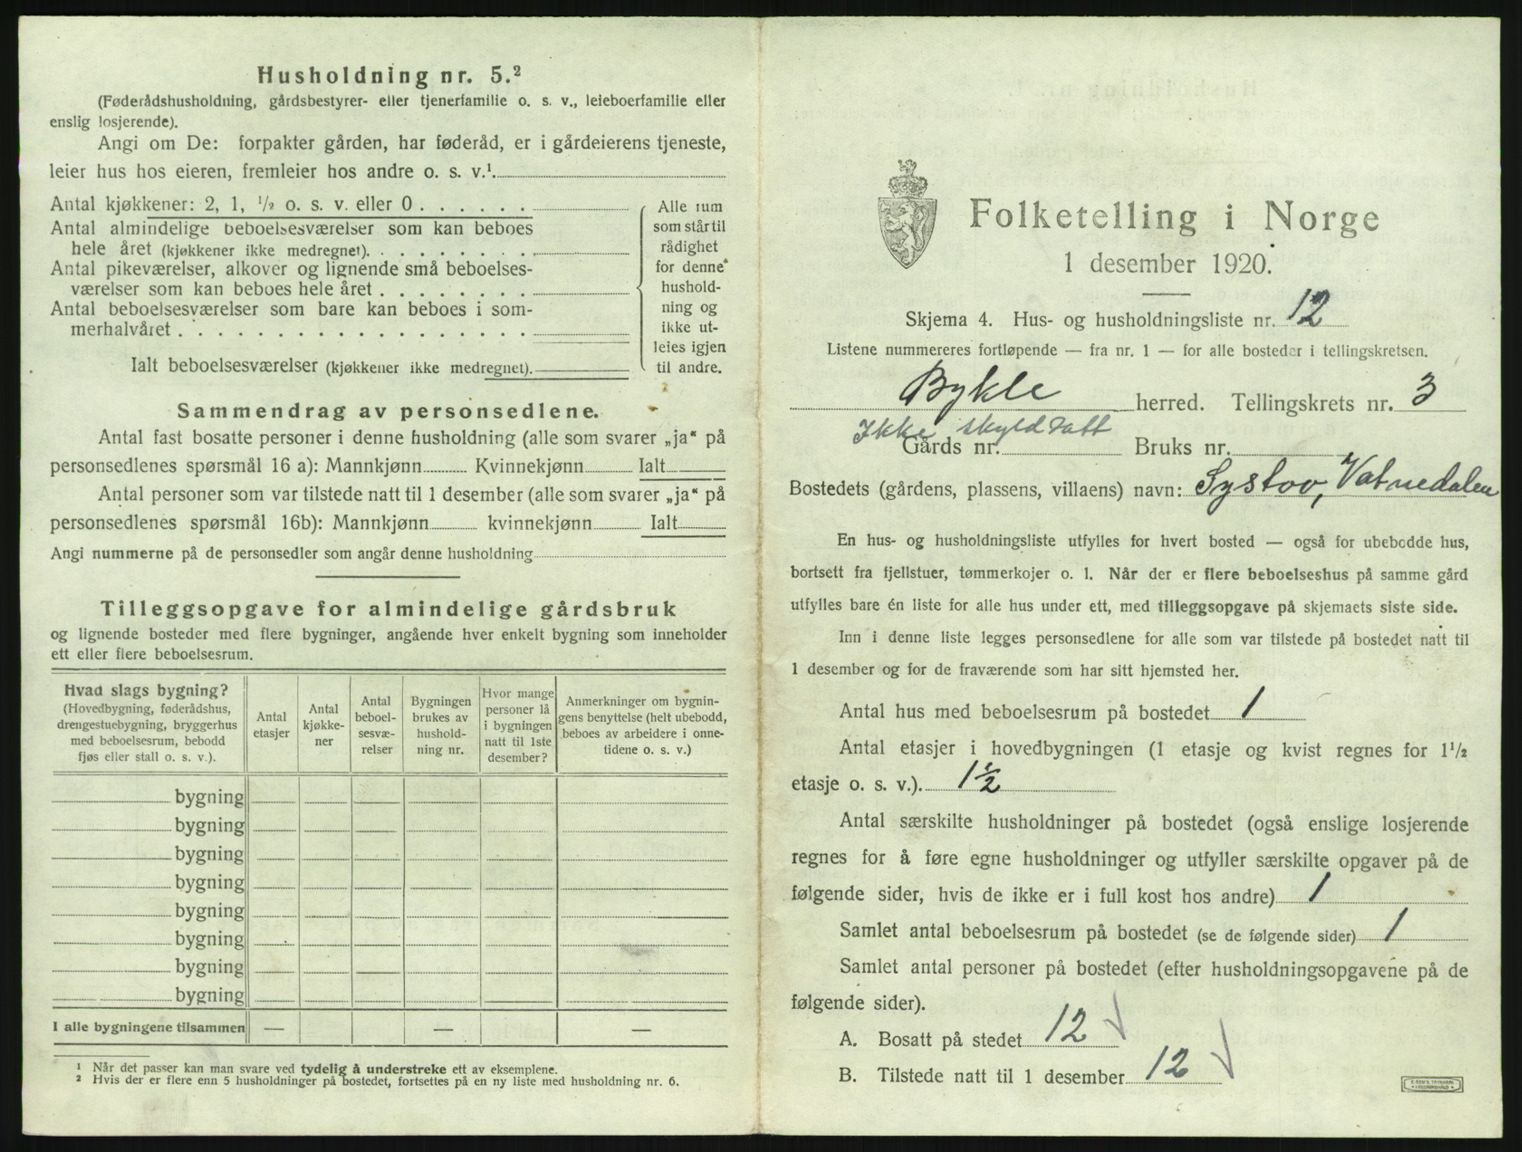 Husholdning nr. 5.²
(Føderådshusholdning, gårdsbestyrer- eller tjenerfamilie o. s. v., leieboerfamilie eller
enslig losjerende).
Angi om De: forpakter gården, har føderåd, er i gårdeierens tjeneste,
leier hus hos eieren, fremleier hos andre o. s. v.¹
Antal kjøkkener: 2, 1, ½ o. s. v. eller 0
Antal almindelige beboelsesværelser som kan beboes
hele året (kjøkkener ikke medregnet).
Antal pikeværelser, alkover og lignende små beboelses-
værelser som kan beboes hele året
Antal beboelsesværelser som bare kan beboes i som-
merhalvåret
Ialt beboelsesværelser (kjøkkener ikke medregnet).
Alle rum
som står til
rådighet
for denne
hushold-
ning og
ikke ut-
leies igjen
til andre.
Sammendrag av personsedlene.
Antal fast bosatte personer i denne husholdning (alle som svarer „ja“ på
personsedlenes spørsmål 16 a): Mannkjønn Kvinnekjønn Ialt
Antal personer som var tilstede natt til 1 desember (alle som svarer „ja“ på
personsedlenes spørsmål 16b): Mannkjønn kvinnekjønn Ialt
Angi nummerne på de personsedler som angår denne husholdning
Tilleggsopgave for almindelige gårdsbruk
og lignende bosteder med flere bygninger, angående hver enkelt bygning som inneholder
ett eller flere beboelsesrum.
Hvad slags bygning?
(Hovedbygning, føderådshus,
drengestuebygning, bryggerhus
med beboelsesrum, bebodd
fjøs eller stall o. s. v.).
Antal
etasjer
Antal
kjøkke-
ner
Antal
beboel-
sesvæ-
relser
Bygningen
brukes av
hushold-
ning nr.
Hvor mange
personer lå
i bygningen
natt til 1ste
desember?
Anmerkninger om bygnin-
gens benyttelse (helt ubebodd,
beboes av arbeidere i onne-
tidene o. s. v.)
bygning
bygning
bygning
bygning
bygning
bygning
bygning
bygning
I alle bygningene tilsammen — — —
¹ Når det passer kan man svare ved tydelig å understreke ett av eksemplene.
² Hvis der er flere enn 5 husholdninger på bostedet, fortsettes på en ny liste med husholdning nr. 6.
Folketelling i Norge
1 desember 1920.
Skjema 4. Hus- og husholdningsliste nr. 12
Listene nummereres fortløpende — fra nr. 1 — for alle bosteder i tellingskretsen.
Bykle herred. Tellingskrets nr. 3
Ikke skyldsatt
Gårds nr. Bruks nr.
Bostedets (gårdens, plassens, villaens) navn: Systov, Vatnedalen
En hus- og husholdningsliste utfylles for hvert bosted — også for ubebodde hus,
bortsett fra fjellstuer, tømmerkojer o. l. Når der er flere beboelseshus på samme gård
utfylles bare én liste for alle hus under ett, med tilleggsopgave på skjemaets siste side.
Inn i denne liste legges personsedlene for alle som var tilstede på bostedet natt til
1 desember og for de fraværende som har sitt hjemsted her.
Antal hus med beboelsesrum på bostedet 1
Antal etasjer i hovedbygningen (1 etasje og kvist regnes for 1½
etasje o. s. v.). 1½
Antal særskilte husholdninger på bostedet (også enslige losjerende
regnes for å føre egne husholdninger og utfyller særskilte opgaver på de
følgende sider, hvis de ikke er i full kost hos andre) 1
Samlet antal beboelsesrum på bostedet (se de følgende sider) 1
Samlet antal personer på bostedet (efter husholdningsopgavene på de
følgende sider).
A. Bosatt på stedet 12
B. Tilstede natt til 1 desember 12